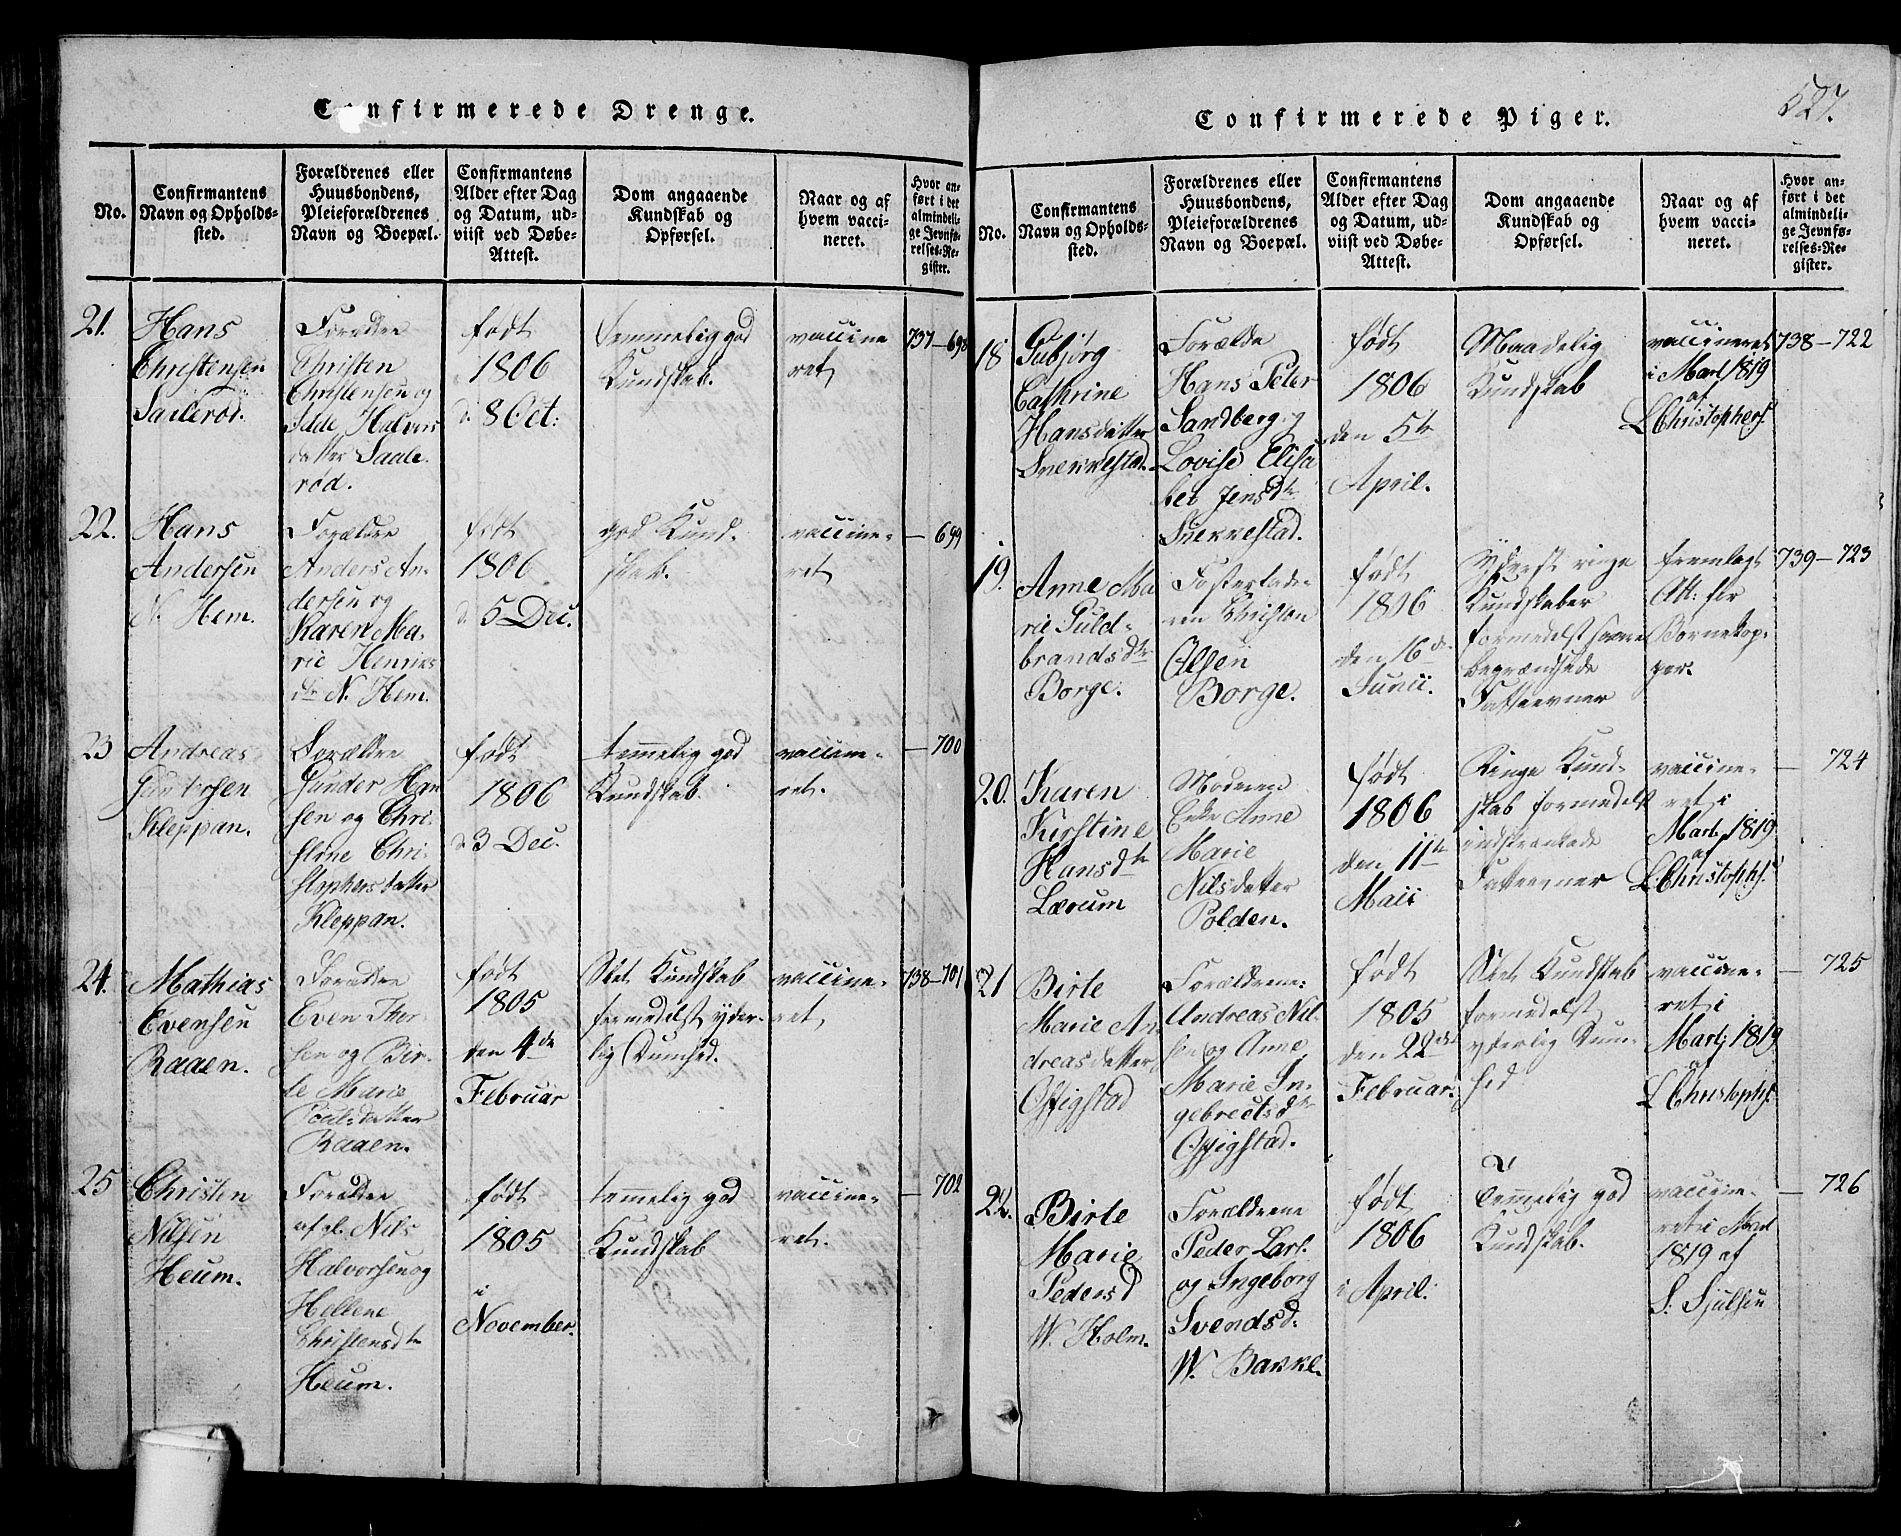 Confirmerede Drenge.
No.
Confirmantens
Navn og Opholds-
sted.
Forældrenes eller
Huusbondens,
Pleieforældrenes
Navn og Boepæl.
Confirmantens
Alder efter Dag
og Datum, ud-
viist ved Døbe-
Attest.
Dom angaaende
Kundskab og
Opførsel.
Naar og af
hvem vacci-
neret.
Hvor an-
ført i det
almindeli-
ge Jevnfø-
relses-Re-
gister.
21.
Hans
Christensen
Saalerød.
Forældre
Christen
Christensen og
Halvors
datter Saale-
rød.
født
1806
d. 8 Oct:
temmelig god
Kundskab.
vaccine
ret
737-698
22.
Hans
Andersen
N. Hem.
Forældre
Anders An-
dersen og
Karen Ma-
rie Henriks
dtr N. Hem.
født
1806
d. 5 Dec.
god Kund-
skab.
vaccine-
ret
— 699
23
Andreas
Gundersen
Kleppan.
Forældre
Gunder Han
sen og Chri-
stine Chri-
stophersdatter
Kleppan.
født
1806
d. 3 Dec.
temmelig god
Kundskab.
vaccine-
ret.
— 700
24.
Mathias
Evensen
Raaen.
Forældre
Even Ther-
sen og Bir-
te Marie
Poulsdatter
Raaen.
født
1805
den 4de
Februar
Slet Kundskab
formedelst yder-
lig Dumhed.
vaccine-
ret
738-701
25
Christen
Nilsen
Heum.
Forældre
afgl. Nils
Halvorsen og
Hellene
Christensdtr
Heum.
født
1805
i
November.
temelig god
Kundskab
vaccine-
ret.
— 702
Confirmerede Piger.
527.
No.
Confirmantens
Navn og Opholds-
sted.
Forældrenes eller
Huusbondens,
Pleieforældrenes
Navn og Boepæl.
Confirmantens
Alder efter Dag
og Datum, ud-
viist ved Døbe-
Attest.
Dom angaaende
Kundskab og
Opførsel.
Naar og af
hvem vacci-
neret.
Hvor an-
ført i det
almindeli-
ge Jevnfø-
relses-Re-
gister.
18
Gubjörg
Cathrine
Hansdatter
Sverrestad.
Forældre
Hans Peter
Sandberg og
Lovise Elisa
bet Jensdtr
Sverrestad.
født
1806
den 5te
April.
Maadelig
Kundskab
vaccineret
i Mart 1819
af
L. Christophers.
738-722
19.
Anne Ma
rie Guld-
brandsdtr
Borge.
Fosterfade-
ren Christen
Olsen
Borge.
født
1806
den 16de
Junii.
Yderst ringe
Kundskaber
formedelst
begrændsede
Fatteevner
fremlagt
Att: for
Børnekop-
per.
739-723
20.
Karen
Kirstine
Hansdtr
Lærum
Moderen
Enke Anne
Marie
Nilsdatter
Polden.
født
1806
den 11te
Maii
Ringe Kund-
skab formedelst
indskrænkede
Fatteevner
vaccine-
ret i
Martj 1819
af
L. Christophs.
— 724
21
Birte
Marie An
dreasdatter
Opsigstad
Forældrene
Andreas Nil-
sen og Anne
Marie In-
gebrectsdtr
Opsigstad.
født
1805
den 22de
Februar.
Slet Kundskab
formedelst
yderlig Dum-
hed
vaccine-
ret i
Martj 1819
af
L. Christophs.
— 725
22.
Birte
Marie
Pedersd
W. Holm.
Forældrene
Peder Lars.
og Ingeborg
Svendsd.
W. Bakke.
født
1806
i April.
Temmelig god
Kundskab.
vaccine-
ret i Mart
1819 af
S. Sjulsen
— 726